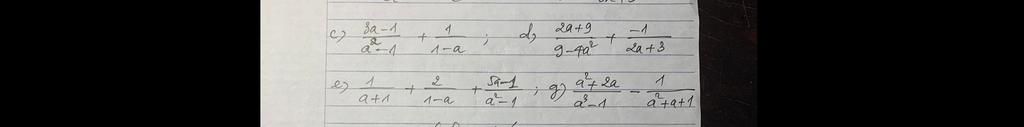 c) \frac{3a-1}{a^2-1} + \frac{1}{1-a} ; d) \frac{2a+9}{9-4a^2} + \frac{-1}{2a+3}
e) \frac{1}{a+1} + \frac{2}{1-a} + \frac{5a-1}{a^2-1} ; g) \frac{a^2+2a}{a^3-1} - \frac{1}{a^2+a+1}